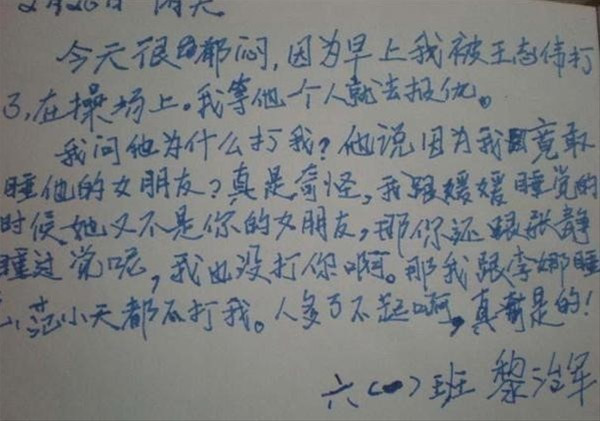 2月26日 阴天
今天很郁闷,因为早上我被王志伟打
了,在操场上。我等他个人就去报仇。
我问他为什么打我?他说因为我竟敢
睡他的女朋友?真是奇怪,我跟媛媛睡觉的
时候她又不是你的女朋友,那你还跟张静
睡过觉呢,我也没打你啊。那我跟李娜睡
,范小天都不打我。人多了不起啊,真是的!
六(一)班 黎治军